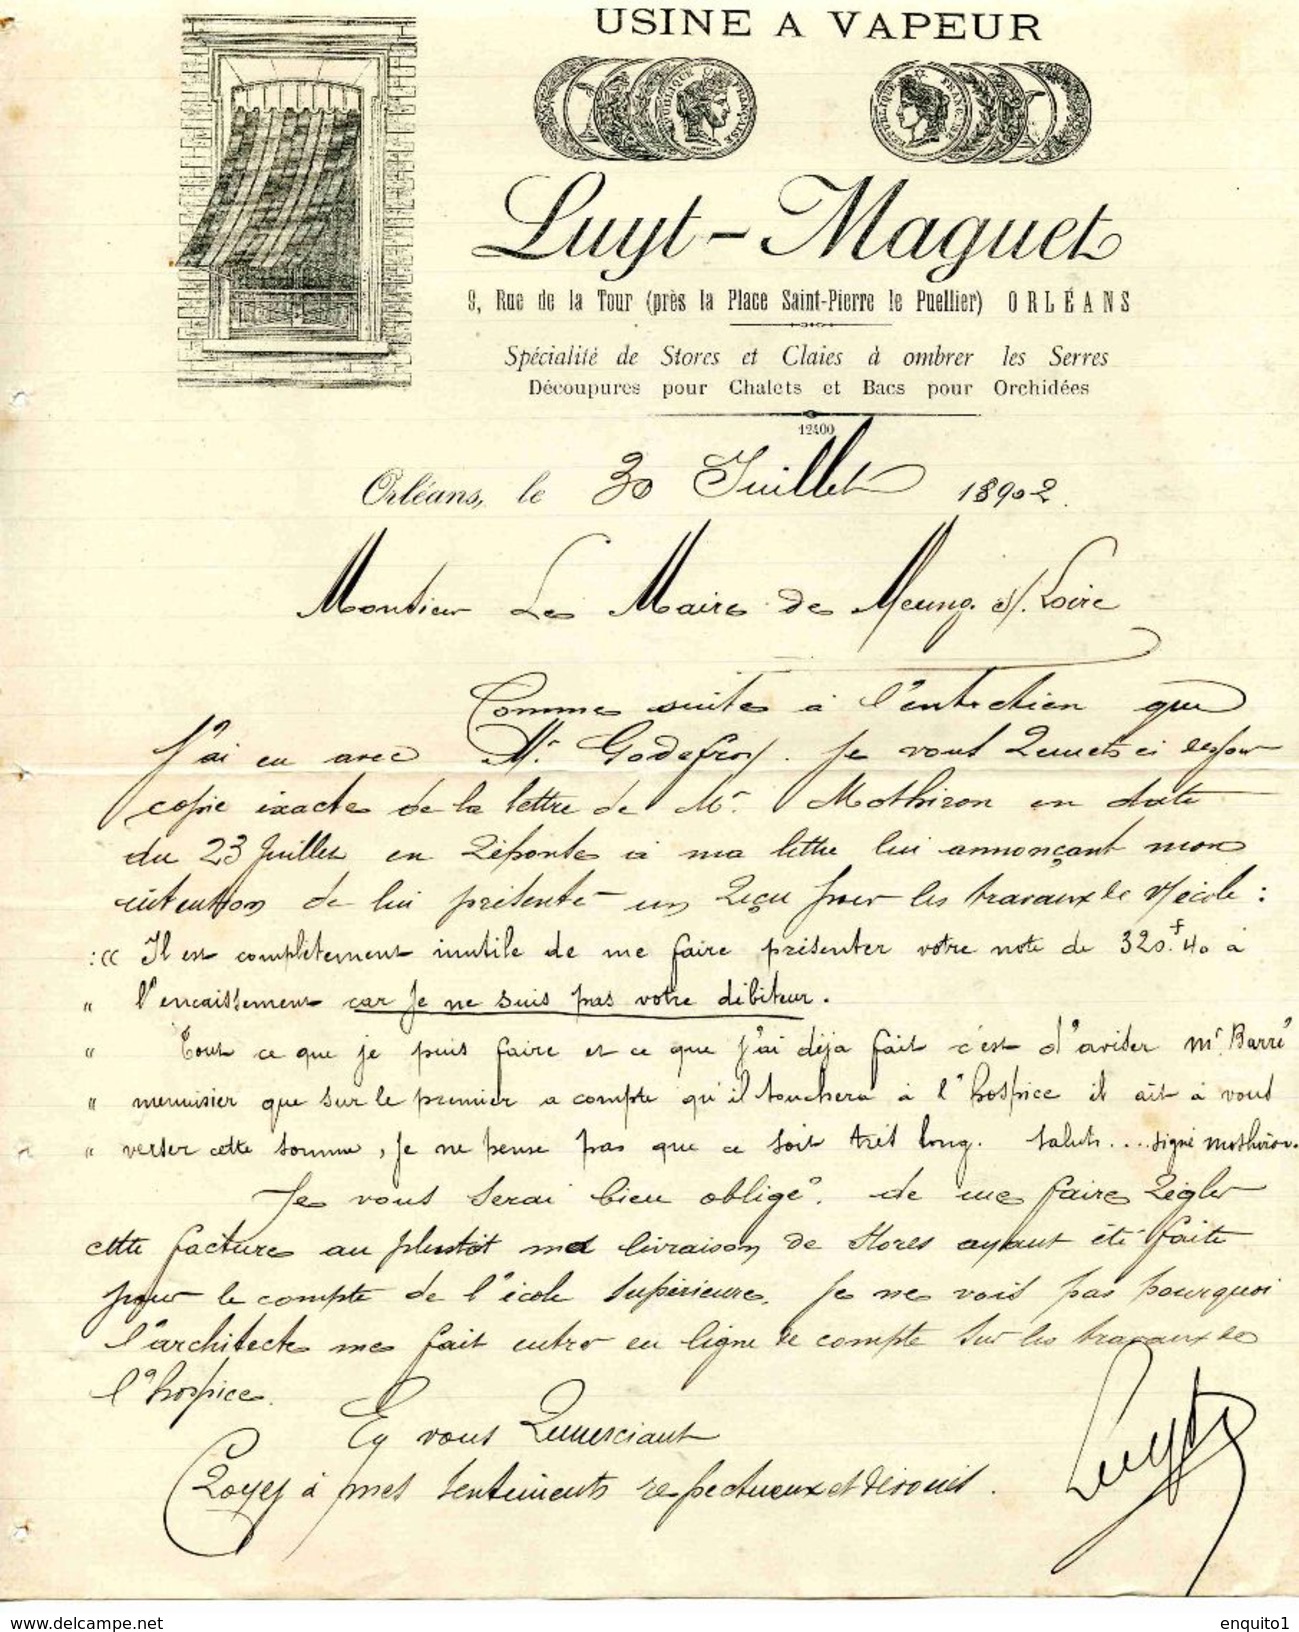 USINE A VAPEUR
RÉPUBLIQUE FRANÇAISE
Luyt-Maguet
9, Rue de la Tour (près la Place Saint-Pierre le Puellier) ORLÉANS
Spécialité de Stores et Claies à ombrer les Serres
Découpures pour Chalets et Bacs pour Orchidées
12400
Orléans, le 30 Juillet 1902.
Monsieur Le Maire de Meung s/. Loire
Comme suite à l'entretien que
J'ai eu avec Mr. Godefroy. Je vous Remets ci dessous
copie exacte de la lettre de Mr. Mothiron en date
du 23 Juillet en Réponse à ma lettre lui annonçant mon
intention de lui présenté un Reçu pour les travaux de l'école :
:(( Il est complètement inutile de me faire présenter votre note de 320.f 40 à
" l'encaissement car je ne suis pas votre débiteur.
" Tout ce que je puis faire et ce que j'ai déja fait c'est d'aviser Mr. Barré
" menuisier que sur le premier acompte qu'il touchera à l'hospice il ait à vous
" verser cette somme, je ne pense pas que ce soit très long. Saluts.... signé Mothiron.
Je vous serai bien obligé. de me faire Régler
cette facture au plustôt ma livraison de stores ayant été faite
pour le compte de l'école supérieure. Je ne vois pas pourquoi
l'architecte me fait entrer en ligne de compte sur les travaux de
l'hospice.
En vous Remerciant
Croyez à mes sentiments respectueux et dévoués.
Luyt
www.delcampe.net
enquito1